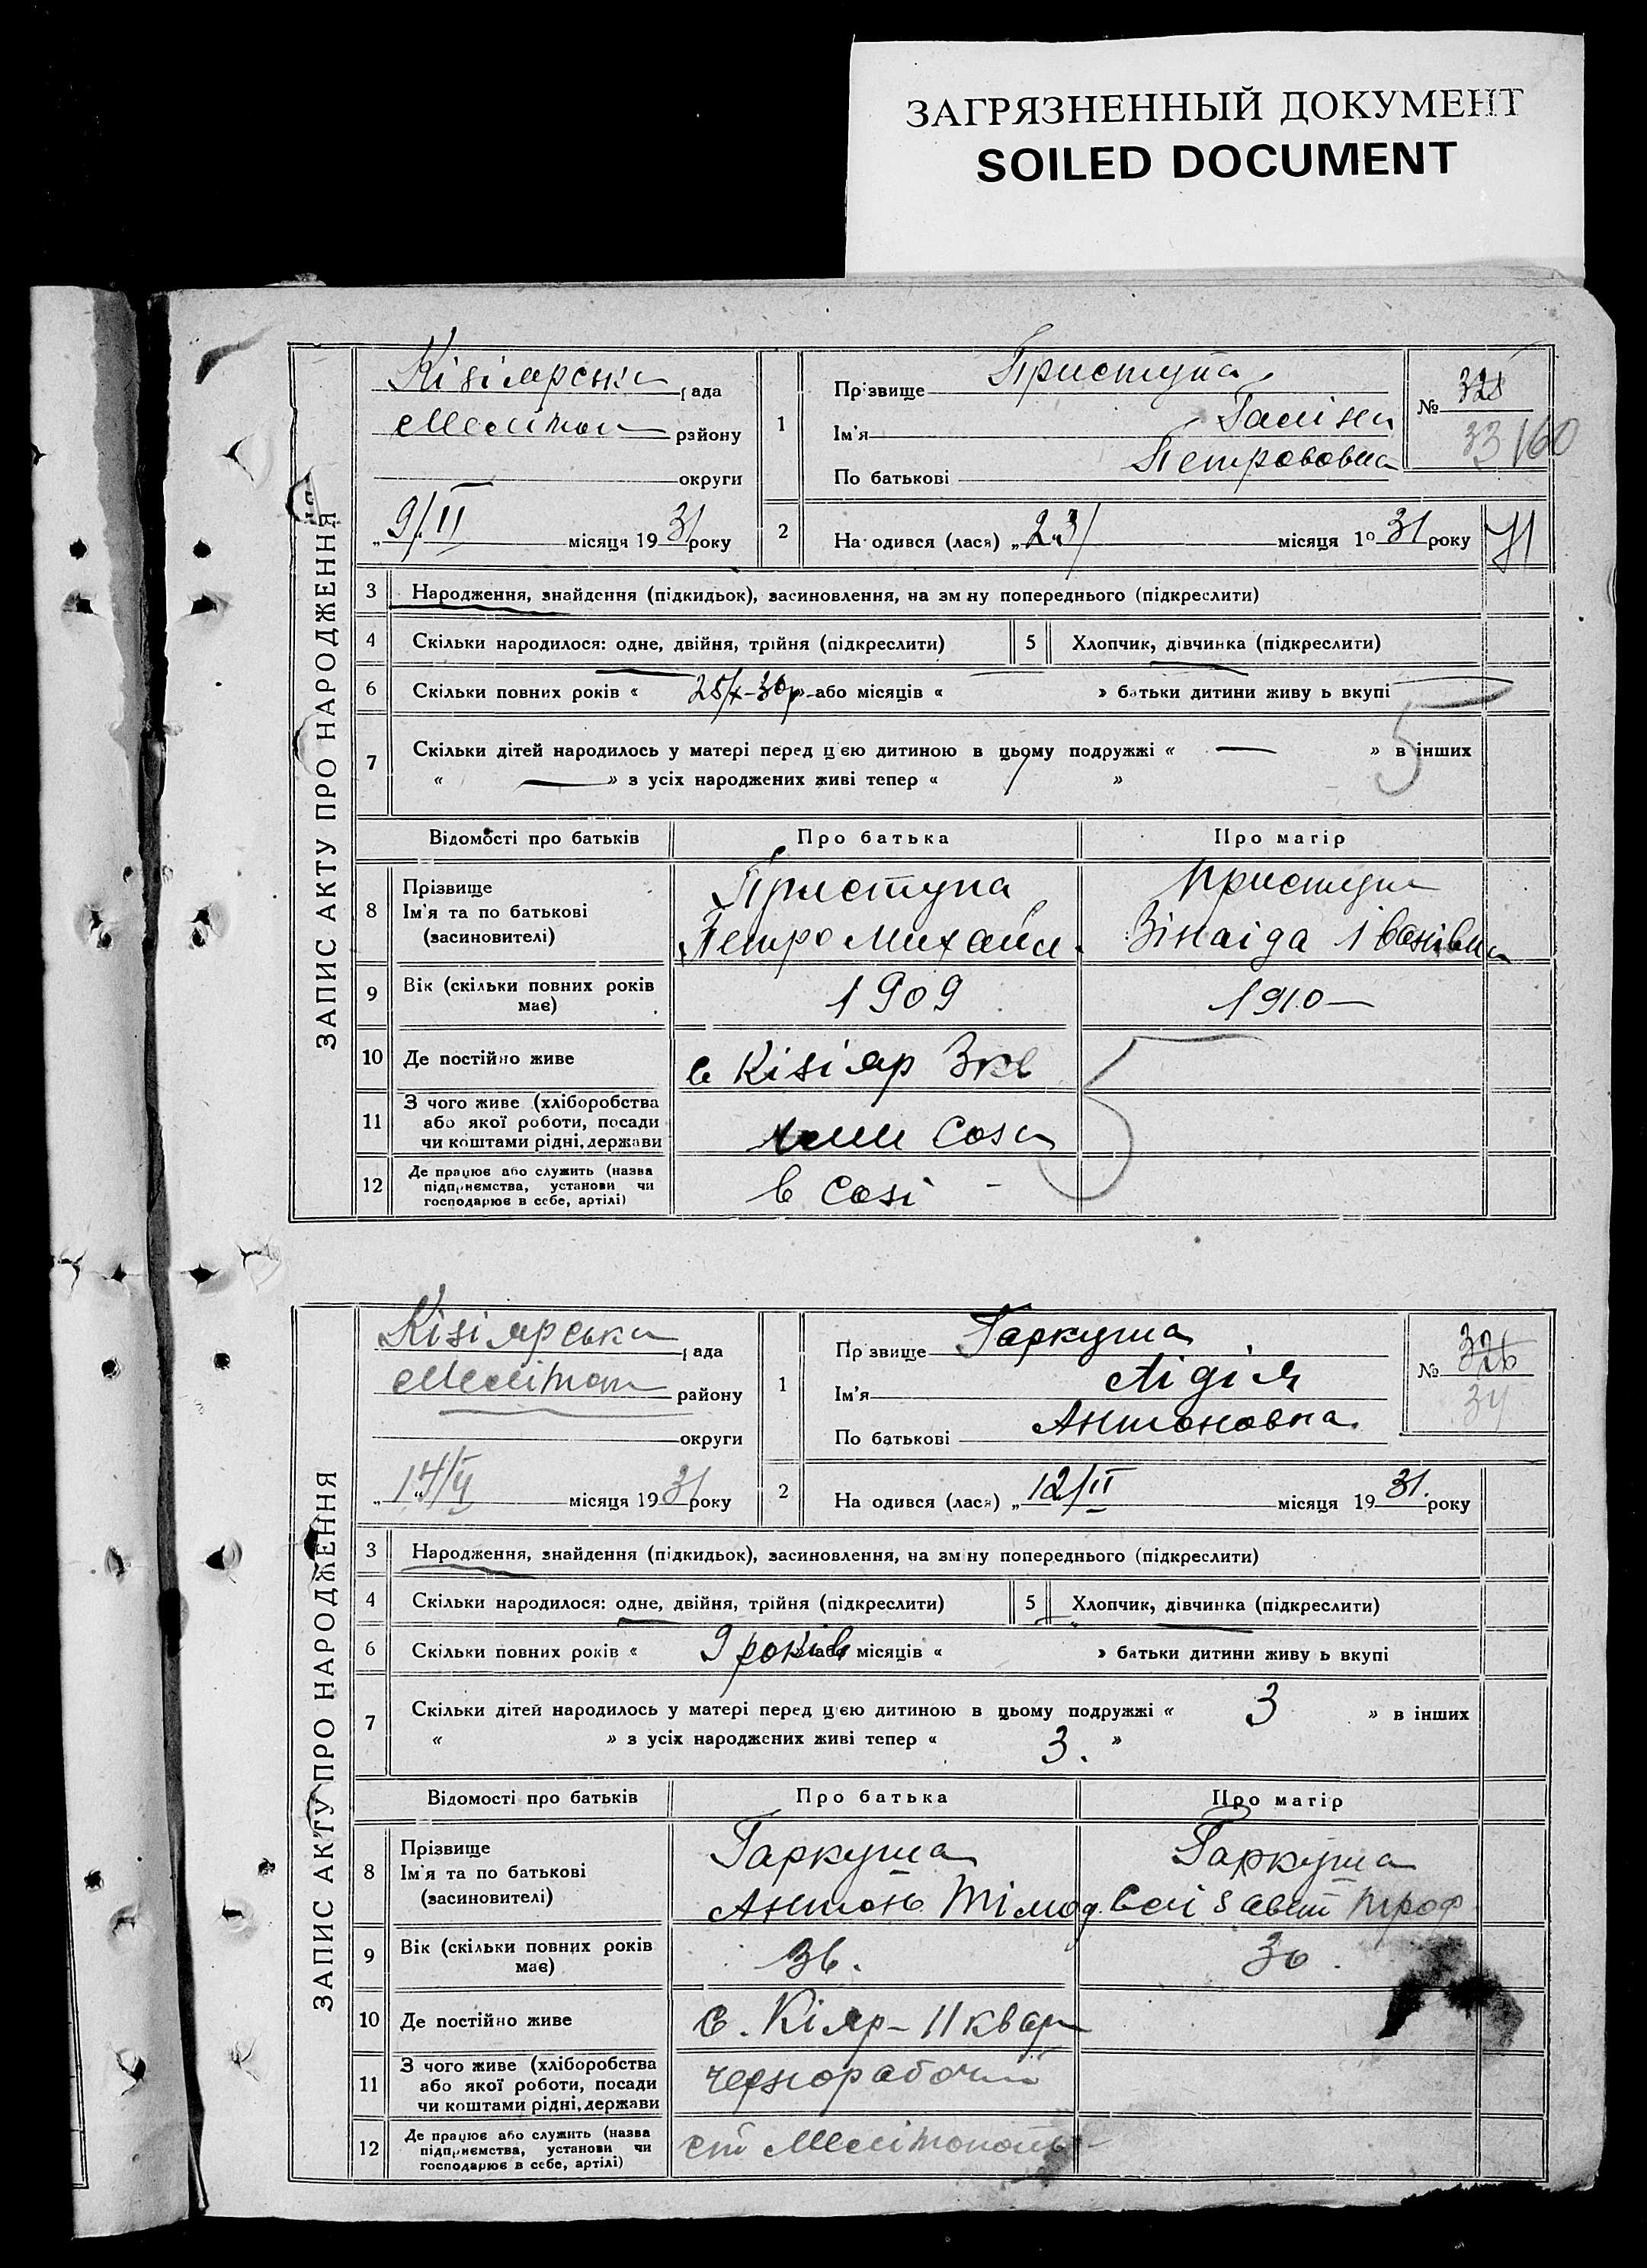 ЗАГРЯЗНЕННЫЙ ДОКУМЕНТ
SOILED DOCUMENT
ЗАПИС АКТУ ПРО НАРОДЖЕННЯ
Кізіярська рада
Мелітоп району
округи
„9/II місяця 1931 року
1
Прізвище Приступа
Ім'я Галіна
По батькові Петрововна
№ 325
33 160
2
Народився (лася) „23/ місяця 1931 року
3 Народження, знайдення (підкидьок), засиновлення, на зміну попереднього (підкреслити)
4 Скільки народилося: одне, двійня, трійня (підкреслити) 5 Хлопчик, дівчинка (підкреслити)
6 Скільки повних років « 25/х-30р » або місяців « » батьки дитини живуть вкупі
7 Скільки дітей народилось у матері перед цією дитиною в цьому подружжі « — » в інших
« — » з усіх народжених живі тепер « / »
5
Відомості про батьків Про батька Про матір
8 Прізвище Ім'я та по батькові (засиновителі)
Приступа Приступа
Петро Михайл. Зінаіда Іванівна
9 Вік (скільки повних років має) 1909 1910—
10 Де постійно живе в Кізіяр 3 кв
5
11 З чого живе (хліборобства або якої роботи, посади чи коштами рідні, держави)
12 Де працює або служить (назва підприємства, установи чи господарює в себе, артілі) в Созі
ЗАПИС АКТУ ПРО НАРОДЖЕННЯ
Кізіярська рада
Мелітоп району
округи
„14/II місяця 1931 року
1
Прізвище Гаркуша
Ім'я Лідія
По батькові Антоновна
№ 326
34
2
Народився (лася) „12/II місяця 1931. року
3 Народження, знайдення (підкидьок), засиновлення, на зміну попереднього (підкреслити)
4 Скільки народилося: одне, двійня, трійня (підкреслити) 5 Хлопчик, дівчинка (підкреслити)
6 Скільки повних років « 9 років або місяців « » батьки дитини живуть вкупі
7 Скільки дітей народилось у матері перед цією дитиною в цьому подружжі « 3 » в інших
« » з усіх народжених живі тепер « 3. »
Відомості про батьків Про батька Про матір
8 Прізвище Ім'я та по батькові (засиновителі)
Гаркуша Гаркуша
Антон Тімоф. Єлізавет Троф
9 Вік (скільки повних років має) 36. 30.
10 Де постійно живе с. Кіяр - 11 квар
11 З чого живе (хліборобства або якої роботи, посади чи коштами рідні, держави) чернорабочий
12 Де працює або служить (назва підприємства, установи чи господарює в себе, артілі) ст Мелітополь